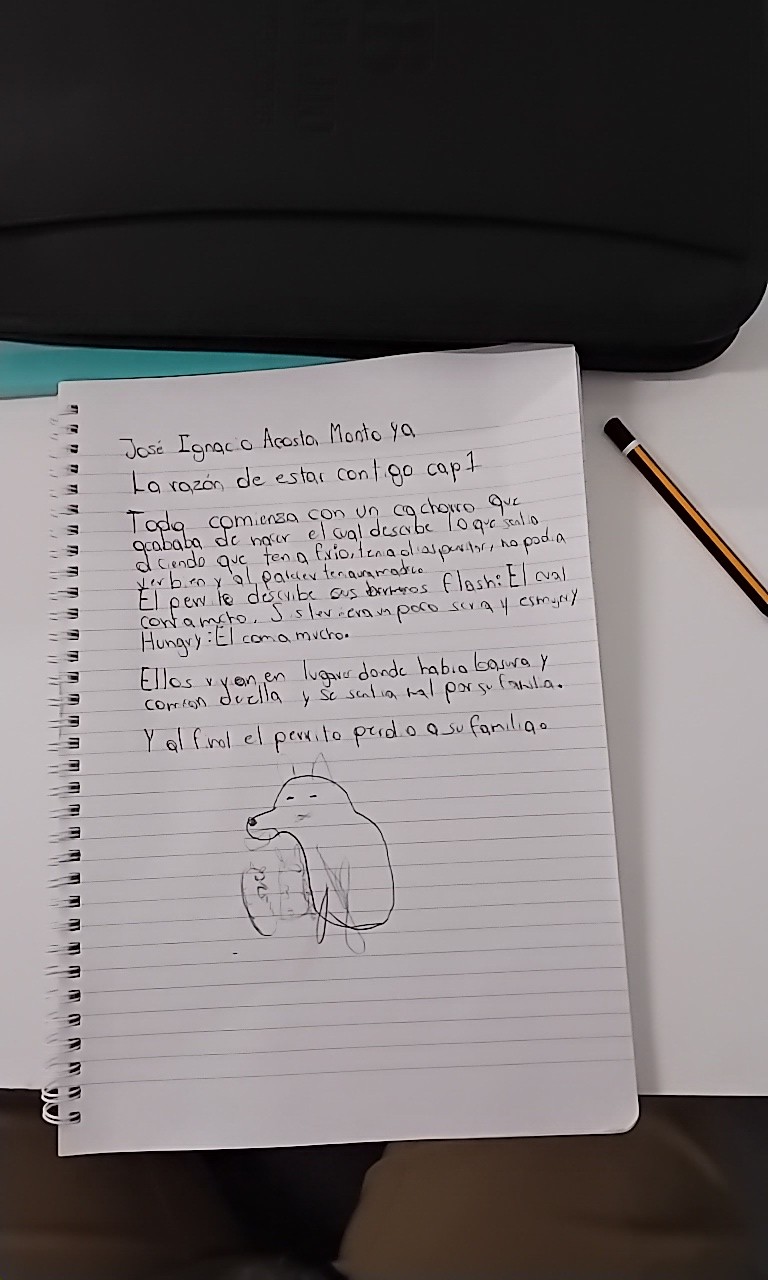 José Ignacio Acosta Montoya
La razón de estar contigo cap1
Todo comienza con un cachorro que
acababa de nacer el cual describe lo que sentia
diciendo que tenia frio, tenia, no podia
ver bien y al parecer tenia una madre
El perrito describe sus hermanos flash: El cual
Sister: era un poco seria y
Hungry: El comia mucho.
Ellos vivan en lugares donde habia basura y
comian de ella y se sentia mal por su familia.
Y al final el perrito perdio a su familia.